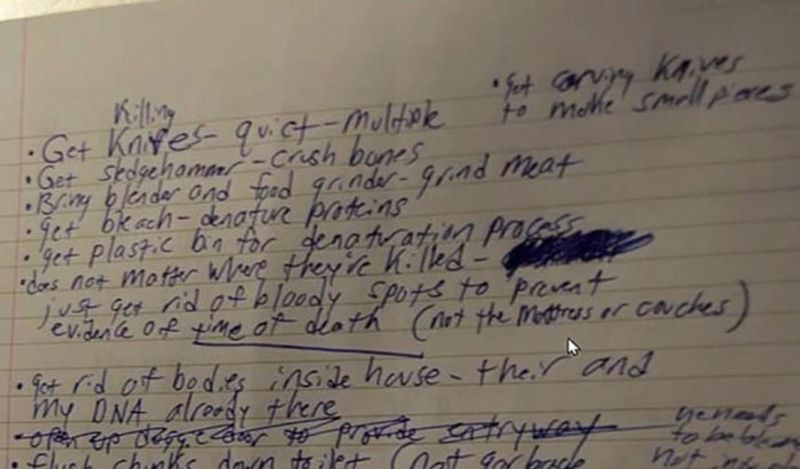 • get carving knives
to make small pieces
Killing
• Get Knives - quiet - multiple
• Get sledgehammer - crush bones
• Bring blender and food grinder - grind meat
• get bleach - denature proteins
• get plastic bin for denaturation process
• does not matter where they're killed -
just get rid of bloody spots to prevent
evidence of time of death (not the mattress or couches)
• get rid of bodies inside house - their and
my DNA already there
to provide entryway
he needs
to be
• flush chunks down toilet (not garbage
not